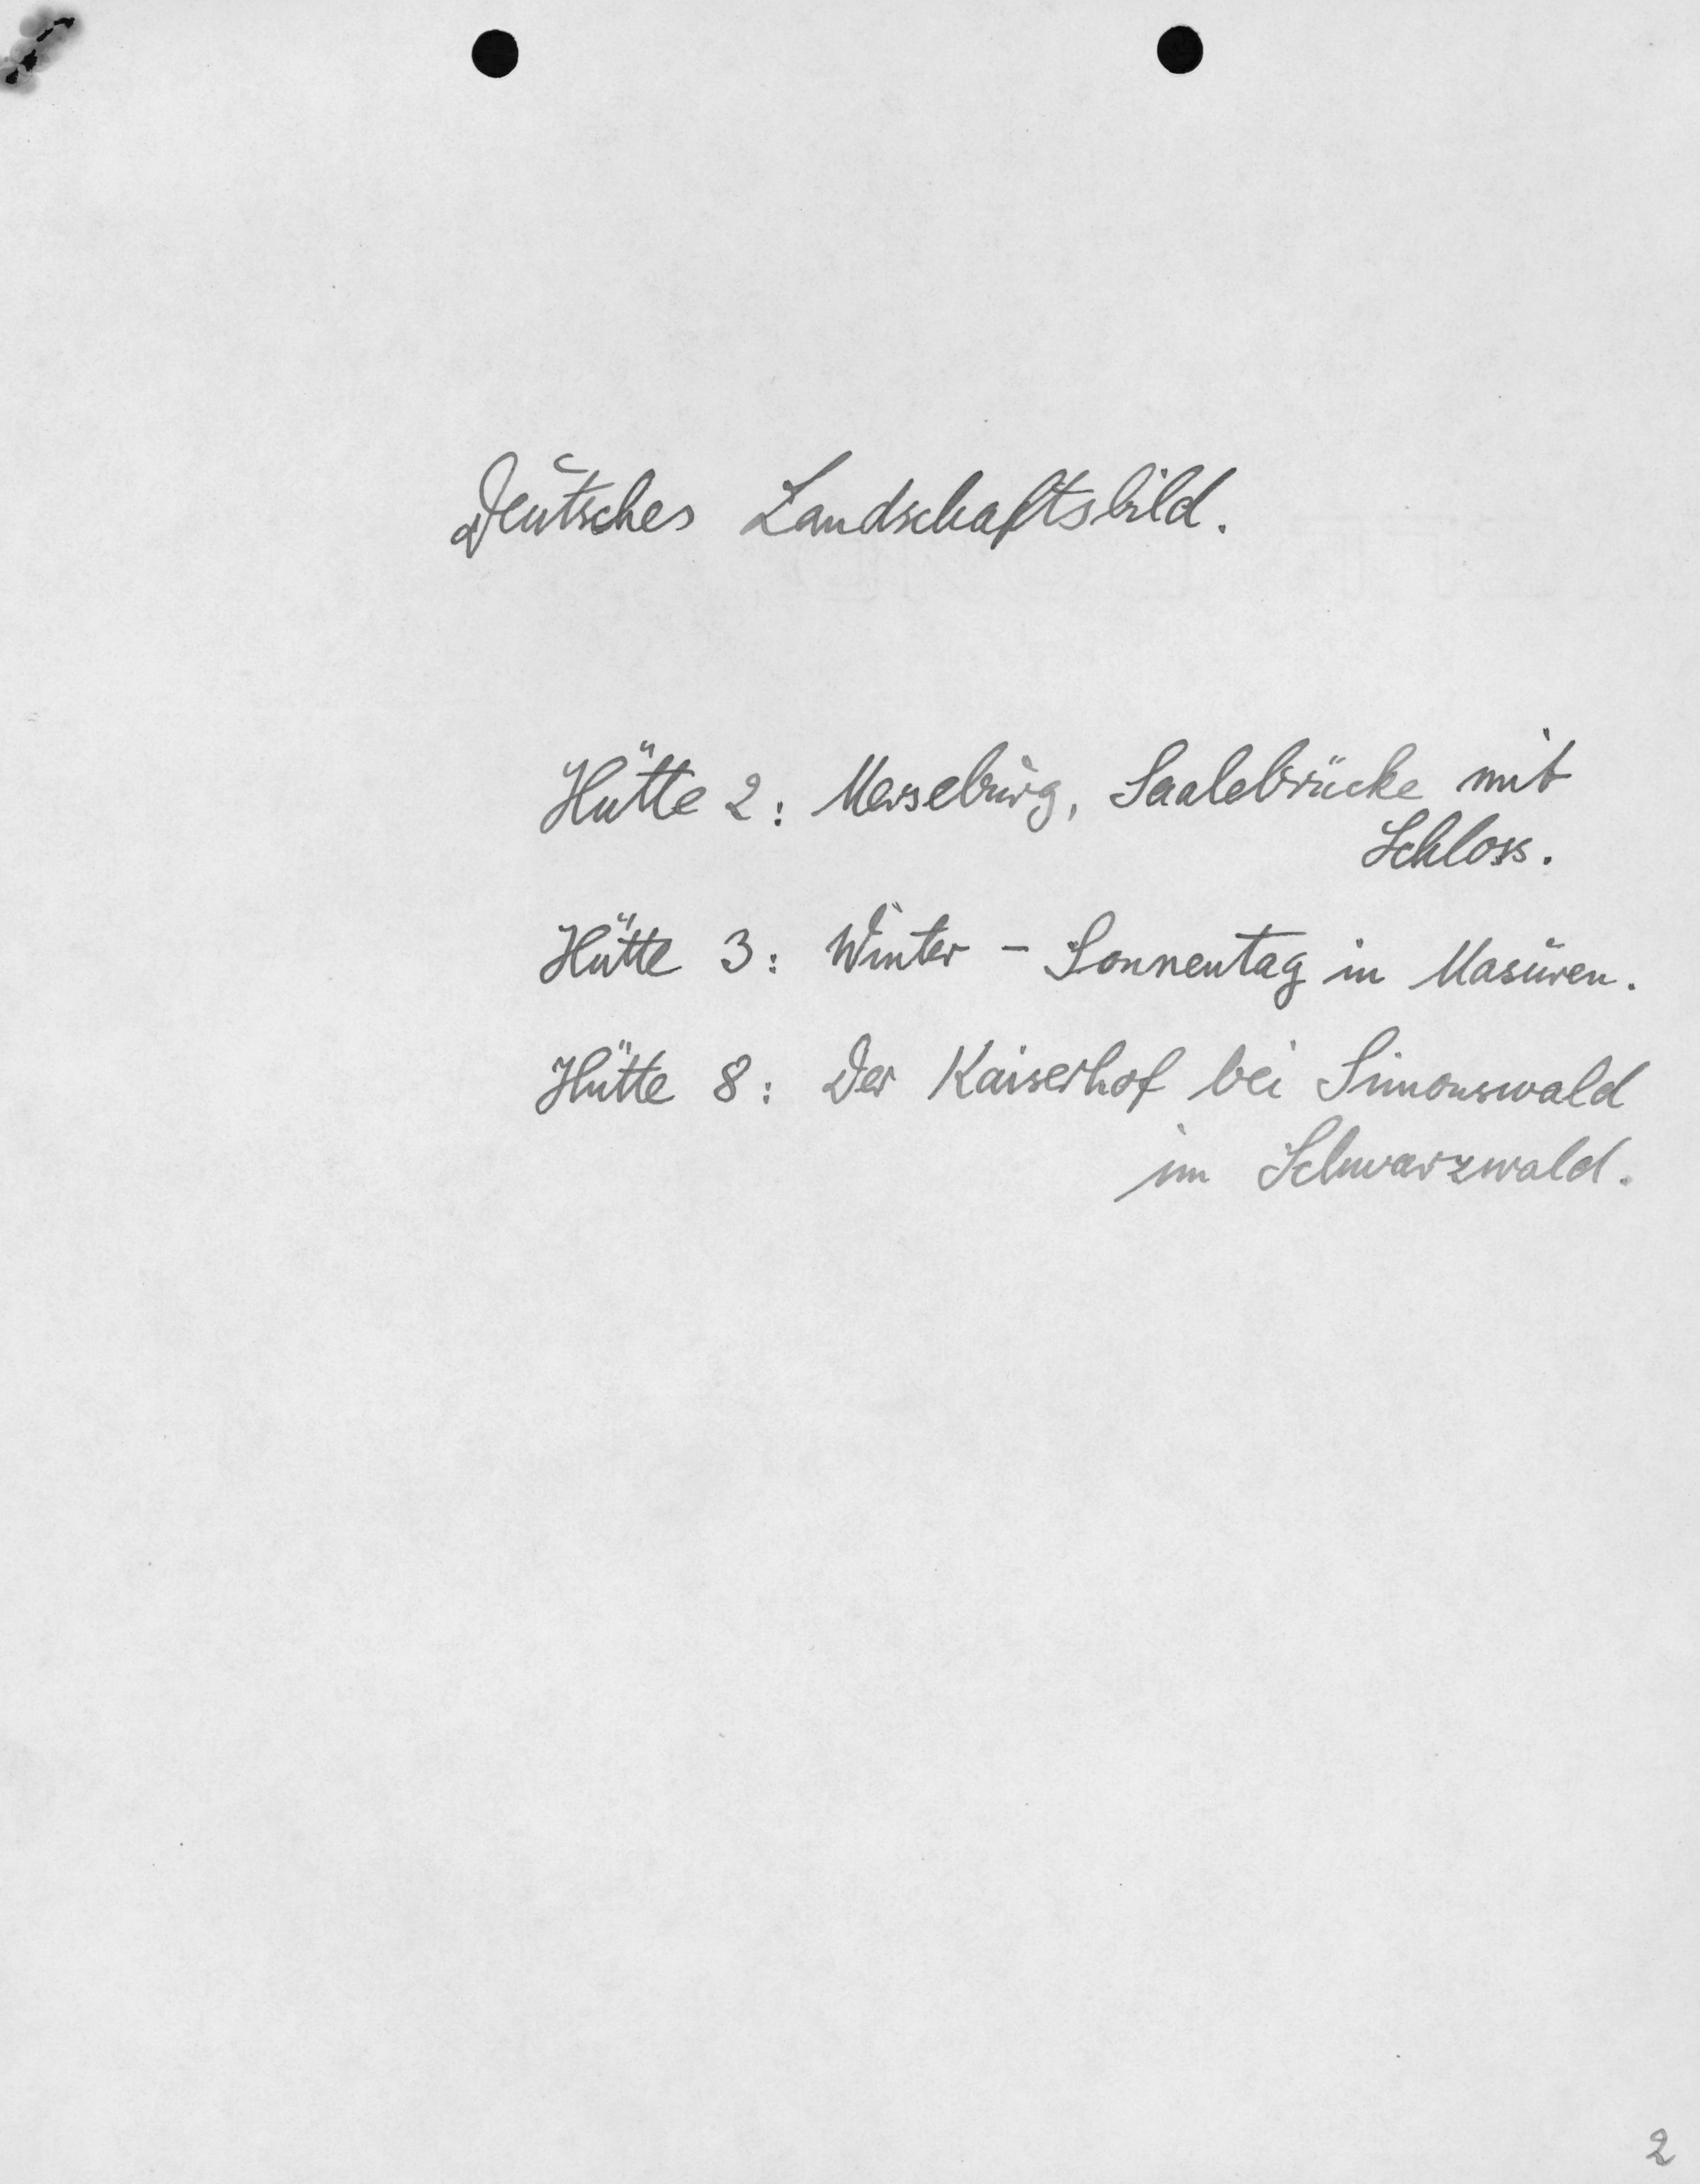 Deutsches Landschaftsbild.
Hütte 2: Merseburg, Saalebrücke mit
Schloss.
Hütte 3: Winter - Sonnentag in Masuren.
Hütte 8: Der Kaiserhof bei Simonswald
im Schwarzwald.
2